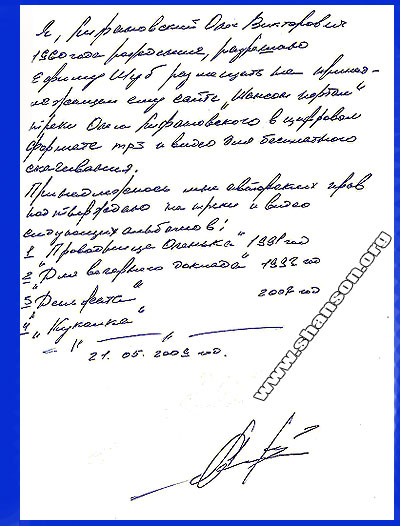 Я, Лифановский Олег Викторович
1960 года рождения, разрешаю
Ефиму Шуб размещать на принад-
лежащем ему сайте „Шансон портал"
треки Олега Лифановского в цифровом
формате mp3 и видео для бесплатного
скачивания.
Принадлежность мне авторских прав
подтверждаю на треки и видео
следующих альбомов:
1 „Проводница Оленька" 1991 год
2 „Для вечернего доклада" 1992 год
3 „ "
2007 год
4 „Куколка"
— „ — „ —
21.05.2009 год.
www.shanson.org